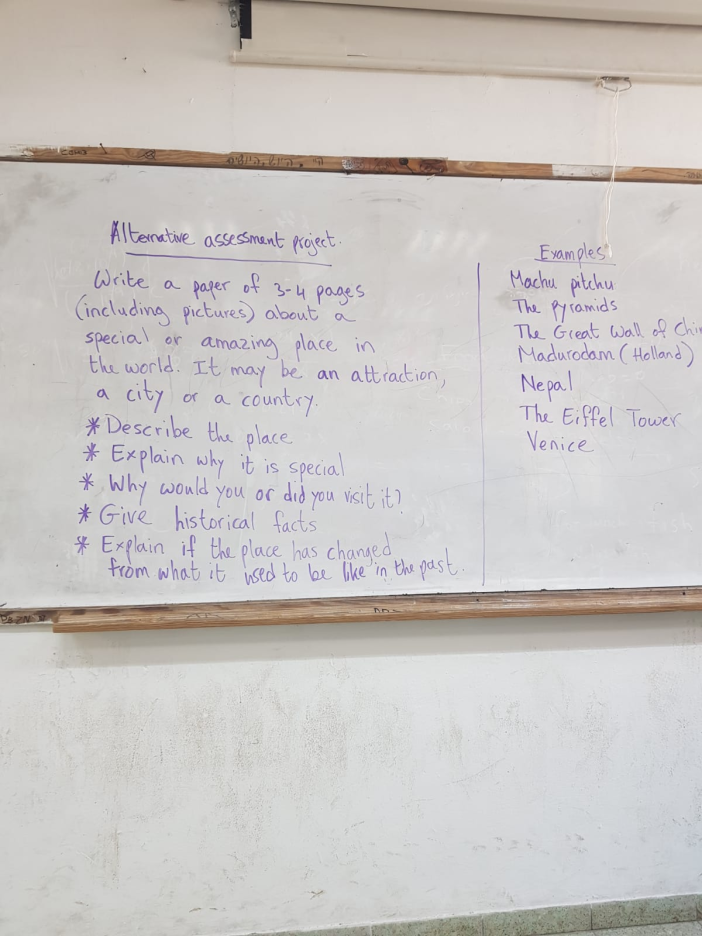 Alternative assessment project.
Write a paper of 3-4 pages
(including pictures) about a
special or amazing place in
the world. It may be an attraction,
a city or a country.
* Describe the place
* Explain why it is special
* Why would you or did you visit it?
* Give historical facts
* Explain if the place has changed
from what it used to be like in the past.
Examples
Machu pitchu
The pyramids
The Great Wall of Chin
Madurodam (Holland)
Nepal
The Eiffel Tower
Venice